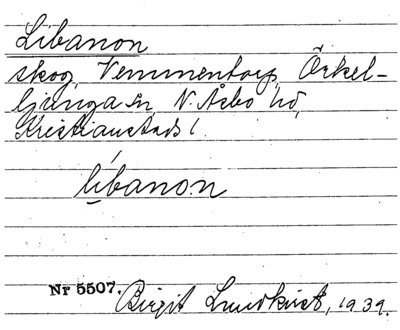 Libanon
skog, Vemmentorp, Örkel-
ljunga sn, N. Åsbo hd,
Kristianstads l.
líbanon
Nr 5507. Birgit Lundkvist, 1939.